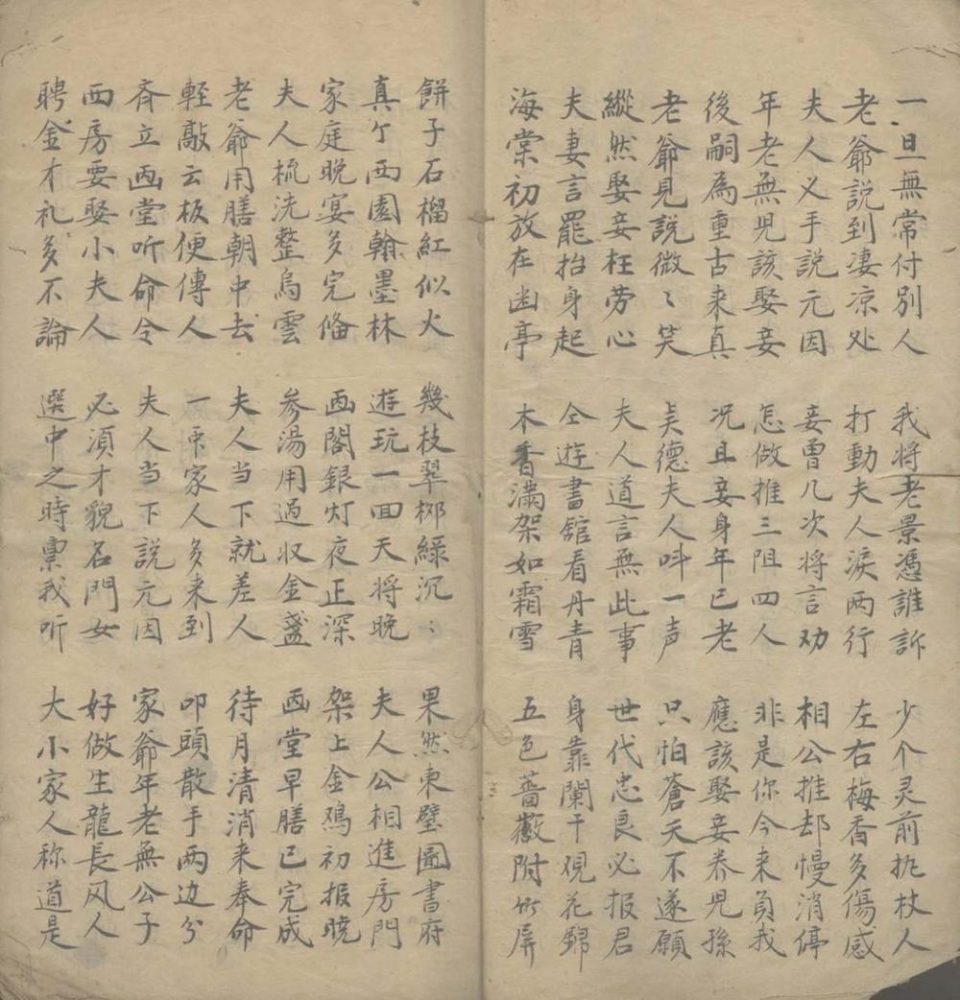 一旦無常付別人 我將老景憑誰訴 少个灵前执杖人
老爺說到凄凉处 打動夫人淚两行 左右梅香多傷感
夫人义手說元因 妾曾几次將言劝 相公推却慢消停
年老無児該娶妾 怎做推三阻四人 非是你今来負我
後嗣為重古来真 况且妾身年已老 應該娶妾养児孫
老爺見說微〻笑 吴德夫人叫一声 只怕蒼天不遂願
縱然娶妾枉劳心 夫人道言無此事 世代忠良必报君
夫妻言罷抬身起 仝遊書舘看丹青 身靠闌干观花歸
海棠初放在幽亭 木香满架如霜雪 五色薔薇附竹屏
餅子石榴紅似火 幾枝翠柳綠沉〻 果然東壁圖書府
真个西園翰墨林 遊玩一回天將晚 夫人公相進房門
家庭晚宴多完俻 画閣銀灯夜正深 架上金鳮初报曉
夫人梳洗整烏雲 参湯用過収金盞 画堂早膳已完成
老爺用膳朝中去 夫人当下就差人 待月清消来奉命
輕敲云板便傳人 一帀家人多来到 叩頭散手两边分
斉立画堂听命令 夫人当下說元因 家爺年老無公子
西房要娶小夫人 必須才貌名門女 好做生龍長凤人
聘金才礼多不論 選中之時禀我听 大小家人称道是